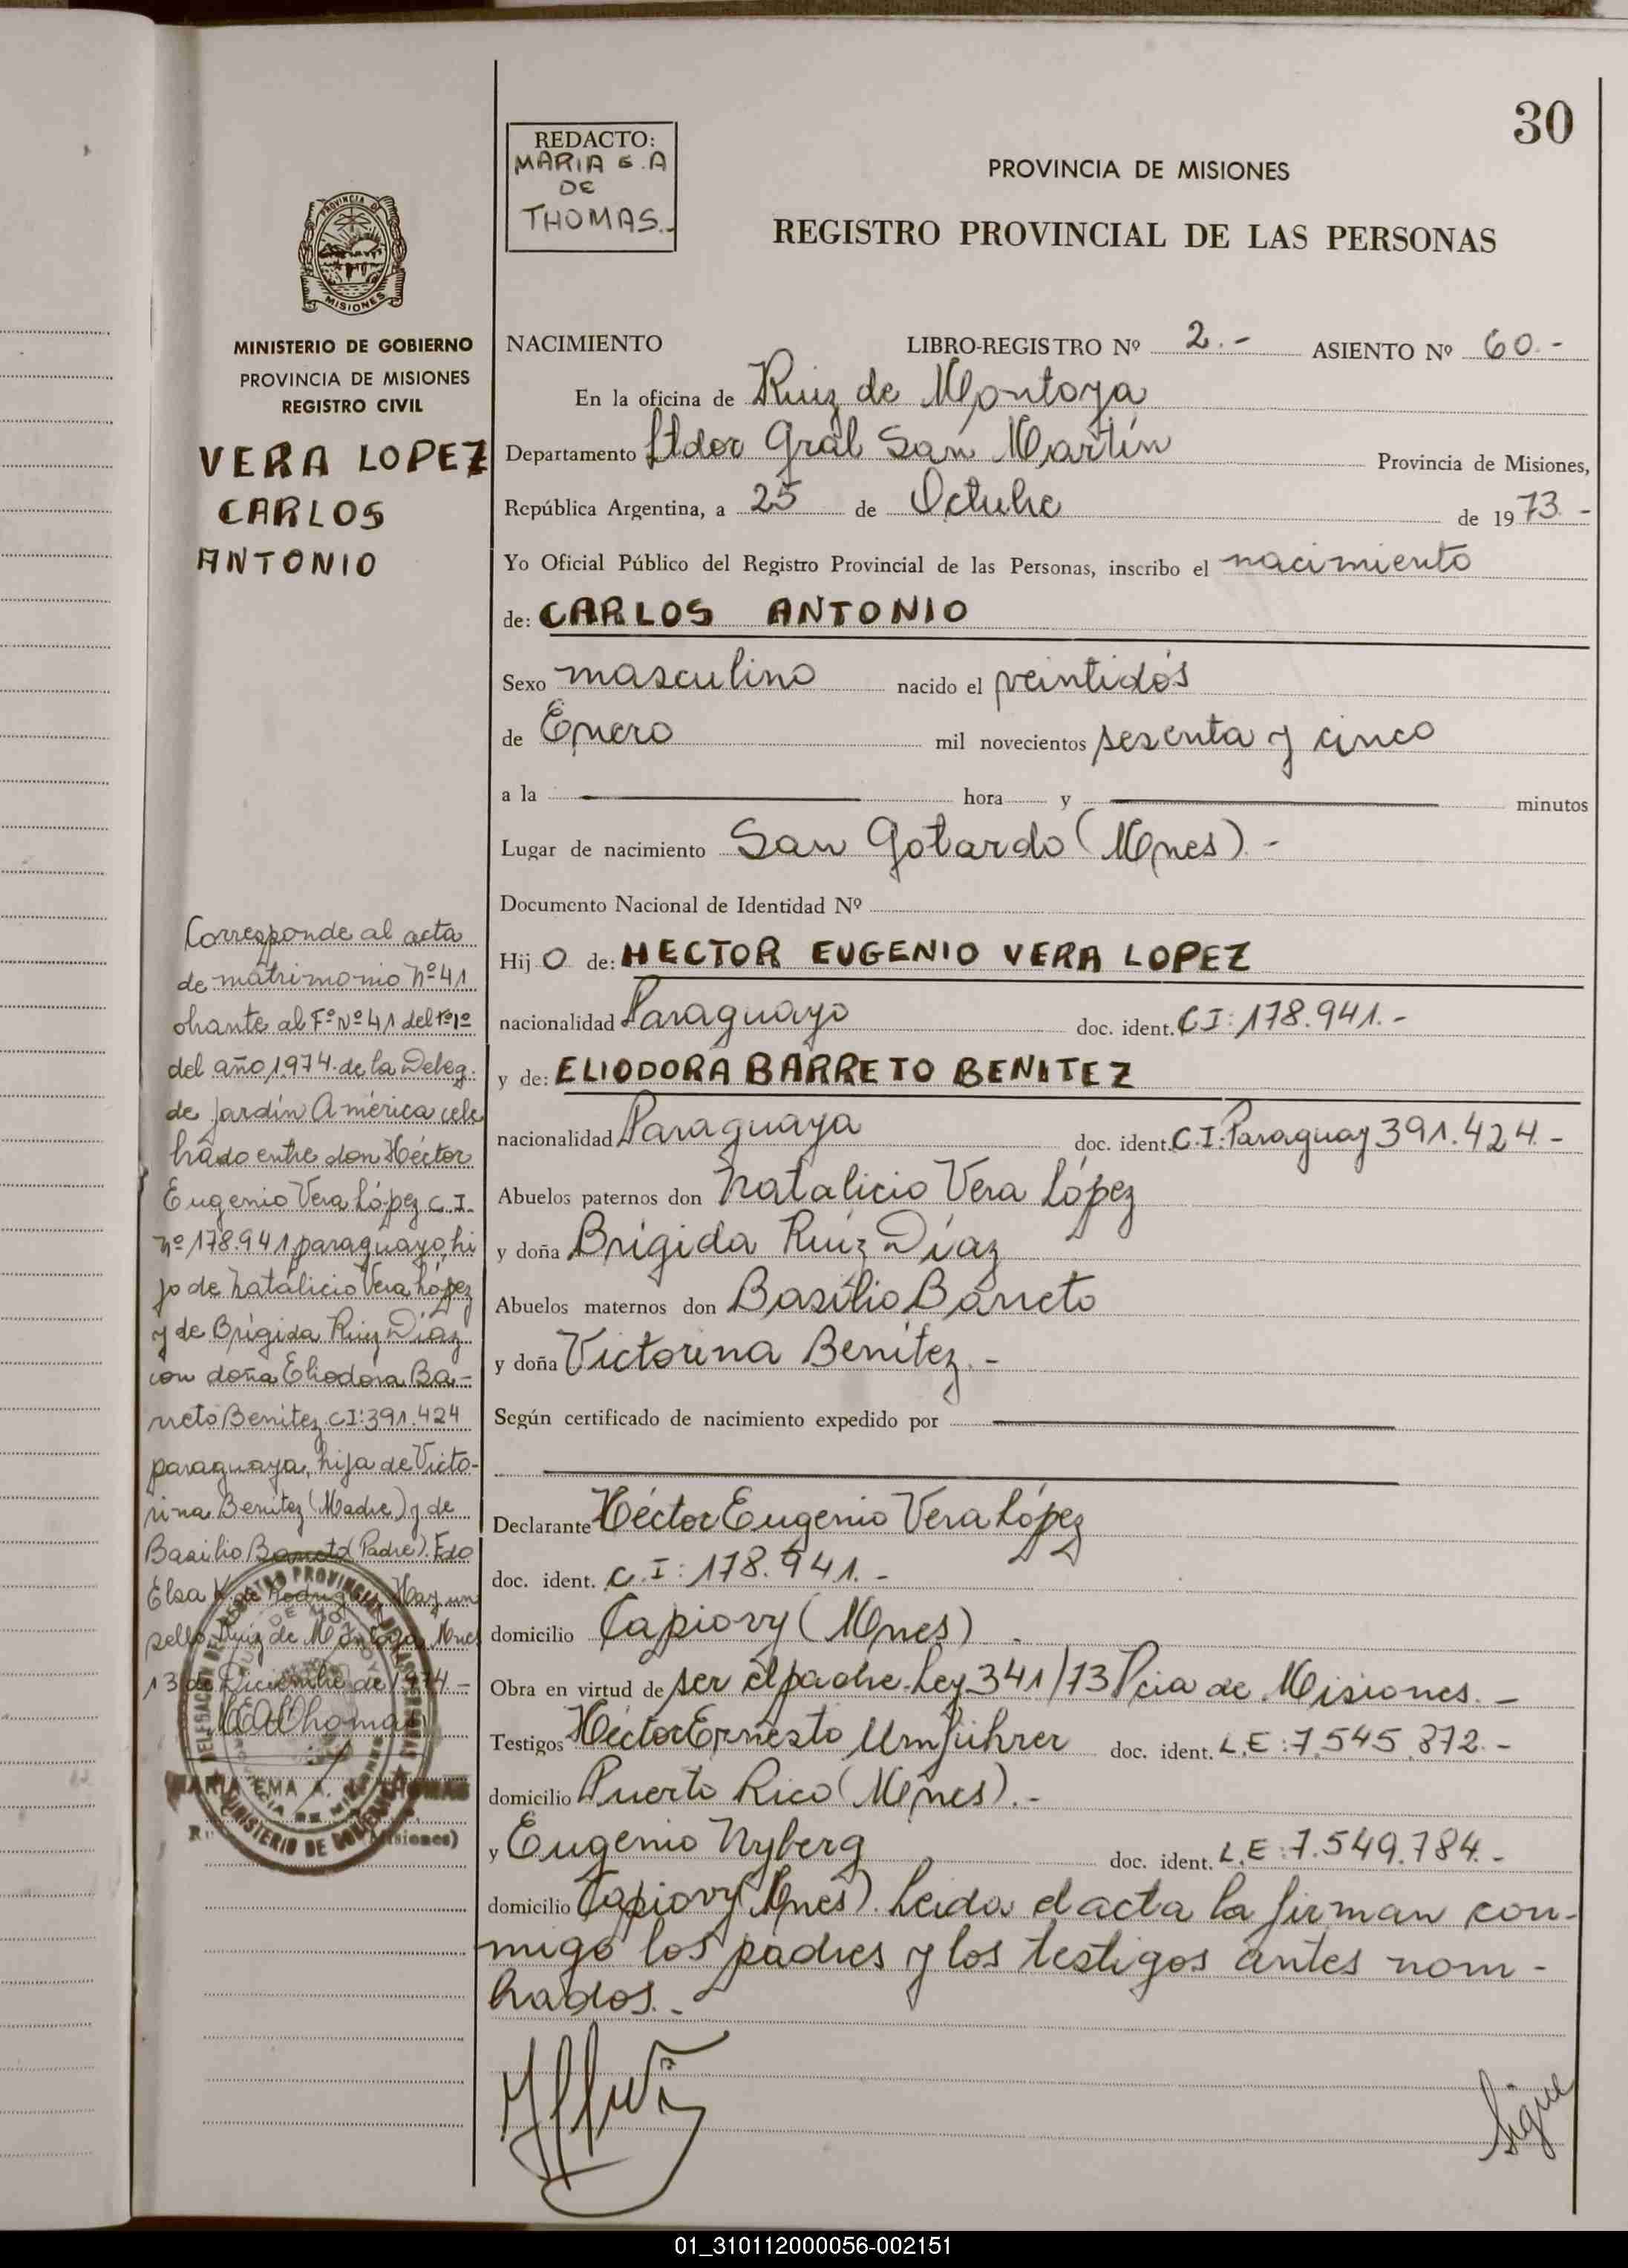 30
REDACTO:
MARIA E. A
DE
THOMAS.-
PROVINCIA DE MISIONES
REGISTRO PROVINCIAL DE LAS PERSONAS
PROVINCIA DE
MISIONES
MINISTERIO DE GOBIERNO
PROVINCIA DE MISIONES
REGISTRO CIVIL
VERA LOPEZ
CARLOS
ANTONIO
Corresponde al acta
de matrimonio Nº 41
obrante al Fº Nº 41 del
del año 1974 de la Deleg.
de Jardín América cele
brado entre don Héctor
Eugenio Vera López C. I.
nº 178.941 paraguayo, hi
jo de Natalicio Vera López
y de Brígida Ruiz Díaz
con doña Eliodora Ba-
rreto Benítez CI: 391.424
paraguaya, hija de Victo-
rina Benítez (Madre) y de
Basilio Barreto (Padre). Fdo
Elsa de Hay un
sello, Ruiz de Montoya, Mnes
13 de Diciembre de 1974 -
MARIA EMA A. THOMAS
NACIMIENTO LIBRO-REGISTRO Nº 2.- ASIENTO Nº 60.-
En la oficina de Ruiz de Montoya
Departamento Ltdor Gral San Martín Provincia de Misiones,
República Argentina, a 25 de Octubre de 1973.-
Yo Oficial Público del Registro Provincial de las Personas, inscribo el nacimiento
de: CARLOS ANTONIO
Sexo masculino nacido el veintidós
de Enero mil novecientos sesenta y cinco
a la hora y minutos
Lugar de nacimiento San Gotardo (Mnes).-
Documento Nacional de Identidad Nº
Hijo de: HECTOR EUGENIO VERA LOPEZ
nacionalidad Paraguayo doc. ident. CI: 178.941.-
y de: ELIODORA BARRETO BENITEZ
nacionalidad Paraguaya doc. ident. C.I: Paraguay 391.424.-
Abuelos paternos don Natalicio Vera López
y doña Brígida Ruiz Díaz
Abuelos maternos don Basilio Barreto
y doña Victorina Benítez.-
Según certificado de nacimiento expedido por
Declarante Héctor Eugenio Vera López
doc. ident. C.I: 178.941.-
domicilio Capiovy (Mnes).
Obra en virtud de ser el padre. Ley 341/73 Pcia de Misiones.-
Testigos Héctor Ernesto Umfuhrer doc. ident. L.E: 7.545.872.-
domicilio Puerto Rico (Mnes).-
y Eugenio Nyberg doc. ident. L.E: 7.549.784.-
domicilio Capiovy (Mnes). Leida el acta la firman con-
migo los padres y los testigos antes nom-
brados.-
Sigue
01_310112000056-002151